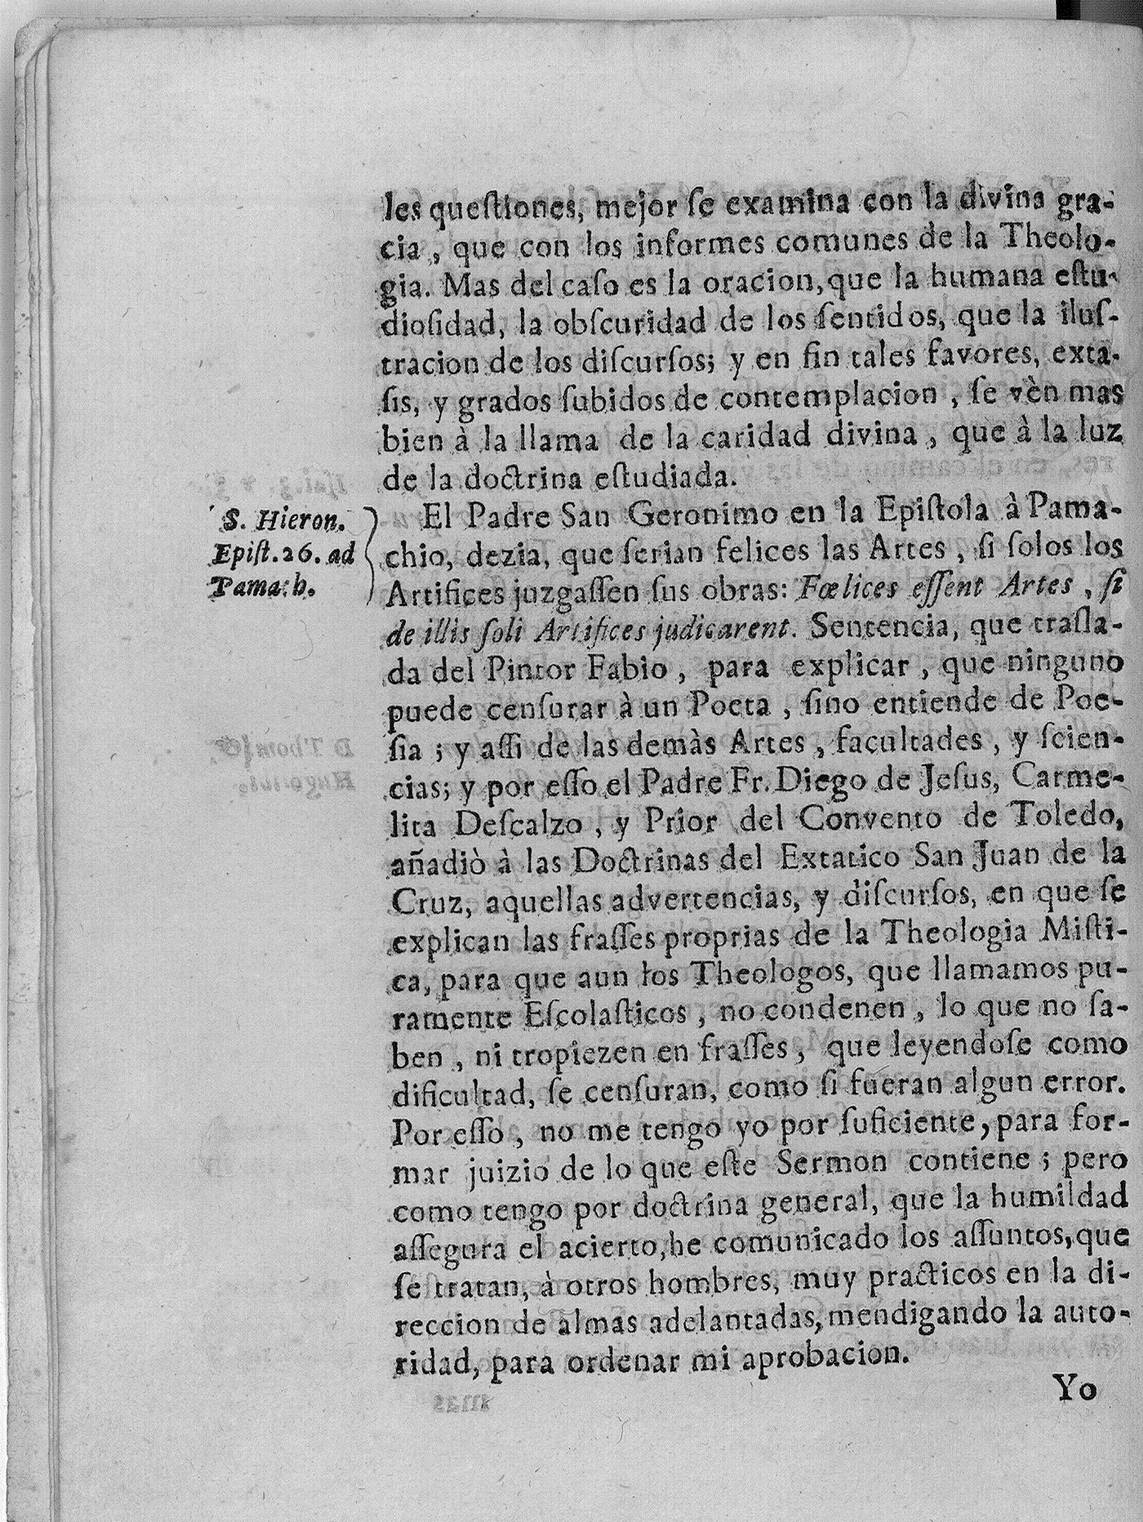 les queſtiones, mejor ſe examina con la divina gra-
cia, que con los informes comunes de la Theolo-
gia. Mas del caſo es la oracion, que la humana eſtu-
dioſidad, la obſcuridad de los ſentidos, que la iluſ-
tracion de los diſcurſos; y en fin tales favores, exta-
ſis, y grados ſubidos de contemplacion, ſe vèn mas
bien à la llama de la caridad divina, que à la luz
de la doctrina eſtudiada.
S. Hieron.
Epiſt. 26. ad
Pamach.
El Padre San Geronimo en la Epiſtola à Pama-
chio, dezia, que ſerian felices las Artes, ſi ſolos los
Artifices juzgaſſen ſus obras: Fœlices eſſent Artes, ſi
de illis ſoli Artifices judicarent. Sentencia, que traſla-
da del Pintor Fabio, para explicar, que ninguno
puede cenſurar à un Poeta, ſino entiende de Poe-
ſia; y aſſi de las demàs Artes, facultades, y ſcien-
cias; y por eſſo el Padre Fr. Diego de Jeſus, Carme-
lita Deſcalzo, y Prior del Convento de Toledo,
añadiò à las Doctrinas del Extatico San Juan de la
Cruz, aquellas advertencias, y diſcurſos, en que ſe
explican las fraſſes proprias de la Theologia Miſti-
ca, para que aun los Theologos, que llamamos pu-
ramente Eſcolaſticos, no condenen, lo que no ſa-
ben, ni tropiezen en fraſſes, que leyendoſe como
dificultad, ſe cenſuran, como ſi fueran algun error.
Por eſſo, no me tengo yo por ſuficiente, para for-
mar juizio de lo que eſte Sermon contiene; pero
como tengo por doctrina general, que la humildad
aſſegura el acierto, he comunicado los aſſuntos, que
ſe tratan, à otros hombres, muy practicos en la di-
reccion de almas adelantadas, mendigando la auto-
ridad, para ordenar mi aprobacion.
Yo